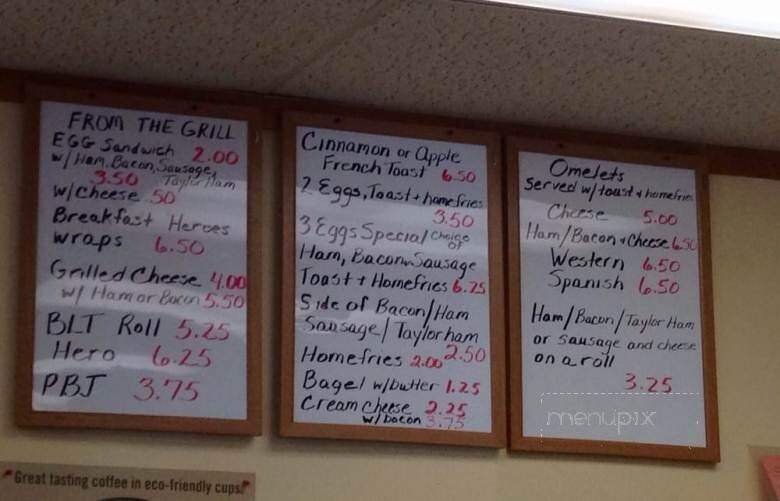 FROM THE GRILL
EGG Sandwich 2.00
w/Ham, Bacon, Sausage,
3.50 Taylor Ham
w/cheese .50
Breakfast Heroes
wraps 6.50
Grilled Cheese 4.00
w/ Ham or Bacon 5.50
BLT Roll 5.25
Hero 6.25
PBJ 3.75
Cinnamon or Apple
French Toast 6.50
2 Eggs, Toast + homefries
3.50
3 Eggs Special Choice of
Ham, Bacon, Sausage
Toast + Homefries 6.25
Side of Bacon/Ham
Sausage/Taylorham
2.50
Homefries 2.00
Bagel w/butter 1.25
Cream Cheese 2.25
w/bacon 3.75
Omelets
Served w/toast + homefries
Cheese 5.00
Ham/Bacon + Cheese 6.50
Western 6.50
Spanish 6.50
Ham/Bacon/Taylor Ham
or sausage and cheese
on a roll
3.25
menupix
Great tasting coffee in eco-friendly cups!